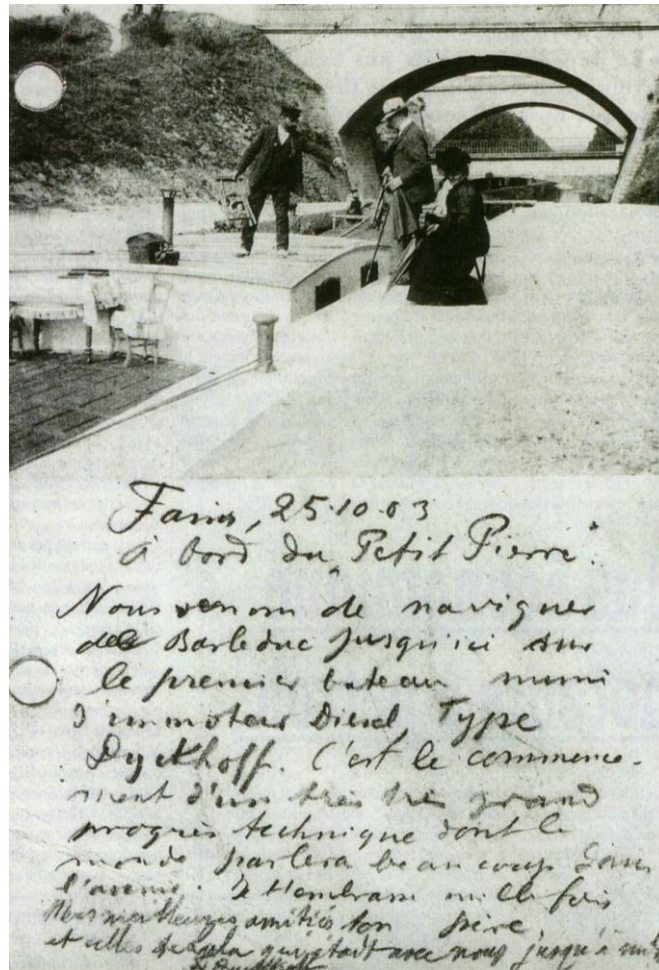 Fains, 25.10.03
à bord du „Petit Pierre".
Nous venons de naviguer
de Barleduc jusqu'ici sur
le premier bateau muni
d'un moteur Diesel, Type
Dyckhoff. C'est le commence-
ment d'un très très grand
progrès technique dont le
monde parlera beaucoup dans
l'avenir. Je t'embrasse mille fois
Mes meilleures amitiés ton
et celles de qui était avec nous jusqu'à